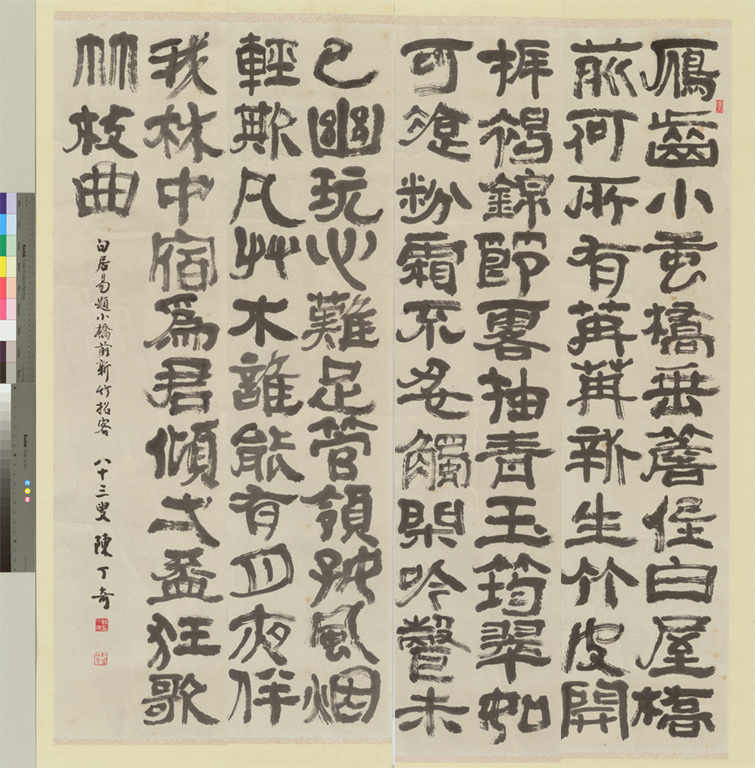 鴈齒小橋垂簷低白屋橋
前何所有苒苒新生竹皮開
坼褐錦節露抽青玉筠翠如
可飡粉霜不忍觸閑吟聲未
已幽玩心難足管領好風烟
輕欺凡艸木誰能有月夜伴
我林中宿為君傾弌盃狂歌
竹枝曲
白居易題小橋前新竹招客 八十三叟陳丁奇